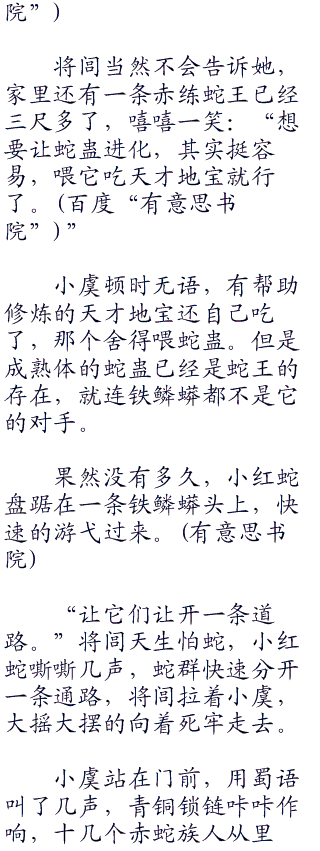 院”)
将闾当然不会告诉她，
家里还有一条赤练蛇王已经
三尺多了，嘻嘻一笑：“想
要让蛇蛊进化，其实挺容
易，喂它吃天才地宝就行
了。(百度“有意思书
院”)”
小虞顿时无语，有帮助
修炼的天才地宝还自己吃
了，那个舍得喂蛇蛊。但是
成熟体的蛇蛊已经是蛇王的
存在，就连铁鳞蟒都不是它
的对手。
果然没有多久，小红蛇
盘踞在一条铁鳞蟒头上，快
速的游弋过来。(有意思书
院)
“让它们让开一条道
路。”将闾天生怕蛇，小红
蛇嘶嘶几声，蛇群快速分开
一条通路，将闾拉着小虞，
大摇大摆的向着死牢走去。
小虞站在门前，用蜀语
叫了几声，青铜锁链咔咔作
响，十几个赤蛇族人从里